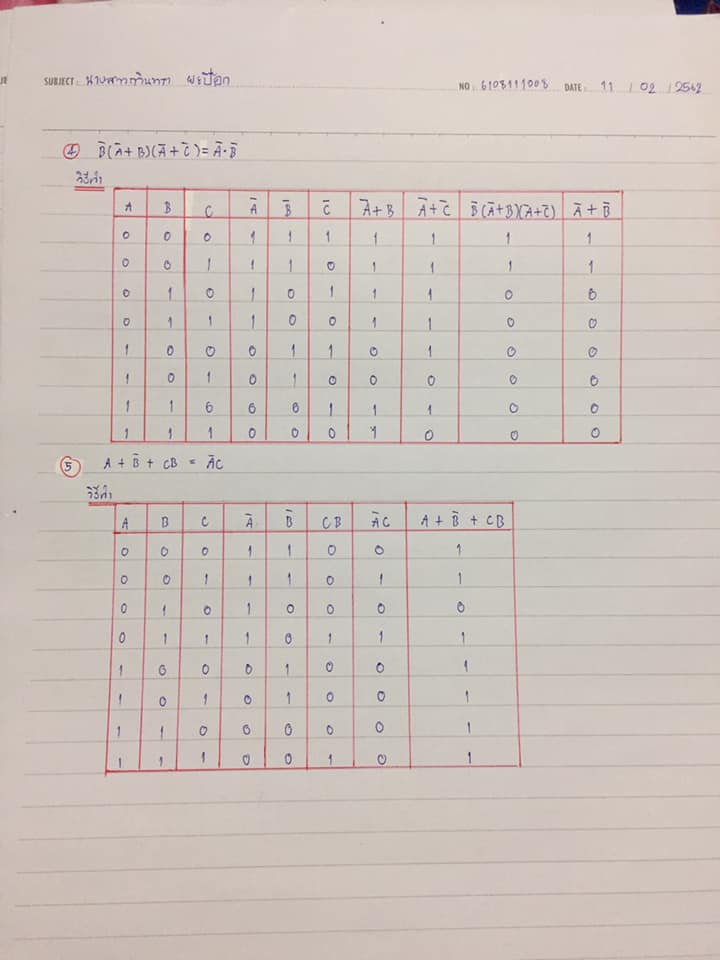 SUBJECT: นางสาวกวินทรา ผะปือก NO: 6108111008 DATE: 11 / 02 / 2562
④ B̅(A̅+B)(A̅+C̅)=A̅·B̅
วิธีทำ
A B C A̅ B̅ C̅ A̅+B A̅+C̅ B̅(A̅+B)(A̅+C̅) A̅+B̅
0 0 0 1 1 1 1 1 1 1
0 0 1 1 1 0 1 1 1 1
0 1 0 1 0 1 1 1 0 0
0 1 1 1 0 0 1 1 0 0
1 0 0 0 1 1 0 1 0 0
1 0 1 0 1 0 0 0 0 0
1 1 0 0 0 1 1 1 0 0
1 1 1 0 0 0 1 0 0 0
⑤ A + B̅ + CB = A̅C
วิธีทำ
A B C A̅ B̅ CB A̅C A + B̅ + CB
0 0 0 1 1 0 0 1
0 0 1 1 1 0 1 1
0 1 0 1 0 0 0 0
0 1 1 1 0 1 1 1
1 0 0 0 1 0 0 1
1 0 1 0 1 0 0 1
1 1 0 0 0 0 0 1
1 1 1 0 0 1 0 1